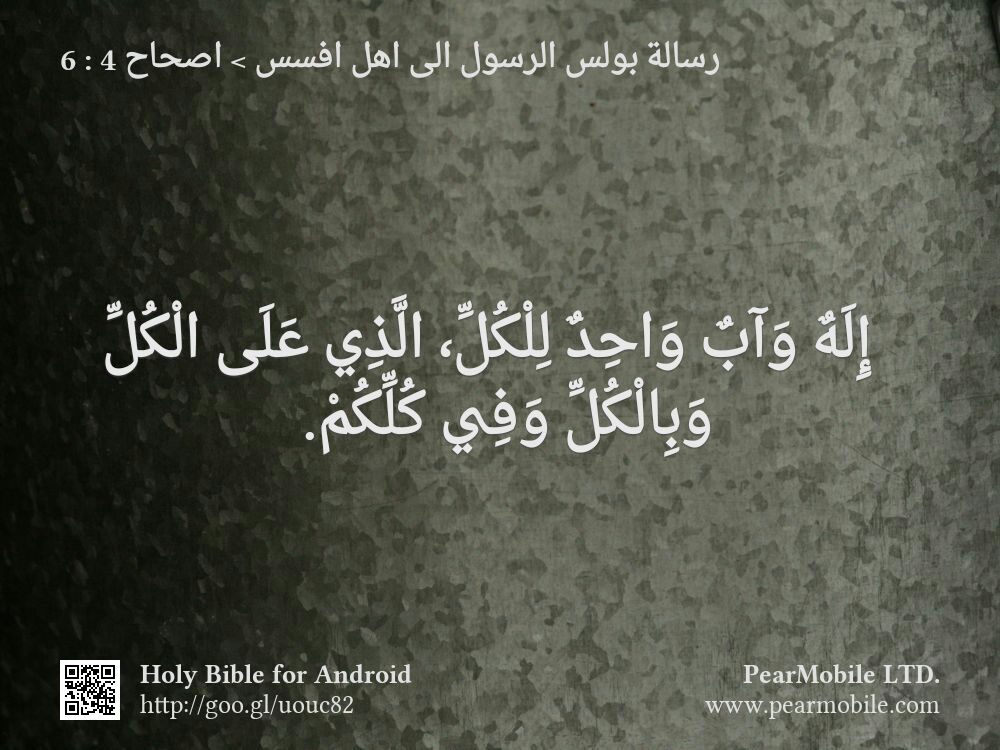 رسالة بولس الرسول الى اهل افسس > اصحاح 4 : 6
إِلَهٌ وَآبٌ وَاحِدٌ لِلْكُلِّ، الَّذِي عَلَى الْكُلِّ
وَبِالْكُلِّ وَفِي كُلِّكُمْ.
Holy Bible for Android
http://goo.gl/uouc82
PearMobile LTD.
www.pearmobile.com